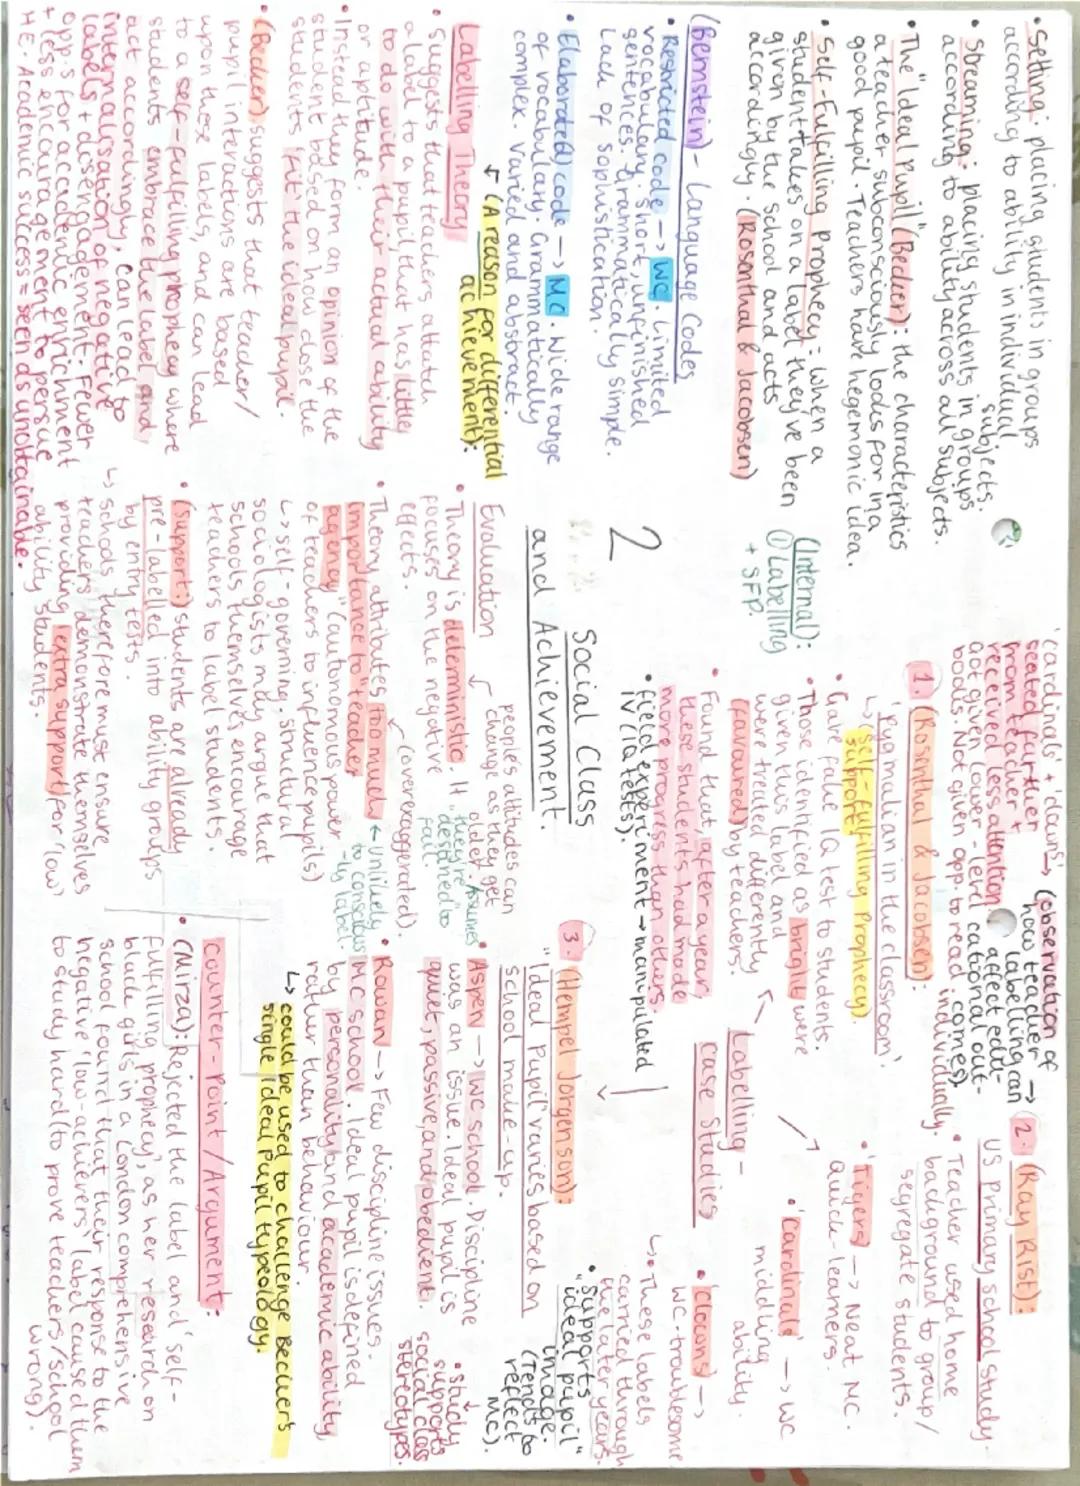 • Setting: placing students in groups
according to ability in individual
subjects.
• Streaming: placing students in groups
according to ability across all subjects.
• The "Ideal Pupil" (Becker): the characteristics
a teacher subconsciously looks for in a
good pupil. Teachers have hegemonic idea.
• Self-Fulfilling Prophecy: when a
student takes on a label they've been
given by the school and acts
accordingly. (Rosenthal & Jacobsen)
(Bernstein) - Language Codes
• Restricted code → WC. Limited
vocabulary, short, unfinished
sentences. Grammatically simple.
Lack of sophistication.
• Elaborated code → MC. Wide range
of vocabulary. Grammatically
complex. Varied and abstract.
↳ (A reason for differential
achievement):
Labelling Theory
• Suggests that teachers attatch
a label to a pupil, that has little
to do with their actual ability
or aptitude.
• Instead they form an opinion of the
student based on how close the
students 'fit' the ideal pupil.
• (Becker) suggests that teacher/
pupil interactions are based
upon these labels, and can lead
to a self-fulfilling prophecy where
students embrace the label and
act accordingly, can lead to
internalisation of negative
labels + disengagement. Fewer
opp.s for academic enrichment
+ less encouragement to persue
HE. Academic success = seen as unobtainable.
(Internal):
① Labelling
+ SFP.
2
Social Class
and Achievement.
Evaluation
• Theory is deterministic. It
focuses on the negative
effects.
people's attitudes can
change as they get
older. Assumes
they're
"destined to
fail."
• Theory attributes too much
importance to "teacher
agency" (autonomous power
of teachers to influence pupils)
(overexaggerated).
← unlikely
to consciously
label.
↳ self-governing. Structural
sociologists may argue that
schools themselves encourage
teachers to label students.
• (Support:) students are already
pre-labelled into ability groups
by entry tests.
↳ schools therefore must ensure
teachers demonstrate themselves
providing extra support for 'low'
ability students.
'cardinals' + 'clowns',
seated further
from teacher +
received less attention
+ got given lower-level
books. Not given opp. to read individually.
↳ (observation of
how teacher
labelling can
affect edu-
cational out-
comes).
1. (Rosenthal & Jacobsen):
'Pygmalian in the classroom'.
↳ (self-fulfilling prophecy).
support
• Gave false IQ test to students.
• Those identified as bright were
given this label and
were treated differently
(favoured) by teachers.
• Found that, after a year,
these students had made
more progress than others.
• field experiment → manipulated
IV (IQ tests).
Labelling -
case studies
→ 2. (Ray Rist):
US primary school study.
• Teacher used home
background to group/
segregate students.
• 'Tigers' → Neat MC.
quick-learners.
• 'Cardinals' → WC
middling
ability.
• 'Clowns' →
WC-troublesome
↳ • These labels
carried through
the later years.
3. (Hempel Jorgenson):
"Ideal Pupil" varies based on
school make-up.
• "Supports
"ideal pupil"
image.
(Tends to
reflect
MC).
• Aspen → WC school. Discipline
was an issue. Ideal pupil is
quiet, passive, and obedient.
• study
supports
social class
stereotypes.
• Rowan → Few discipline issues.
MC school. Ideal pupil is defined
by personality and academic ability,
rather than behaviour.
↳ could be used to challenge Becker's
single ideal pupil typeology.
counter-point / Argument:
• (Mirza): Rejected the label and 'self-
fulfilling prophecy', as her research on
black girls in a London comprehensive
school found that their response to the
negative 'low-achievers' label caused them
to study hard (to prove teachers/school
wrong).